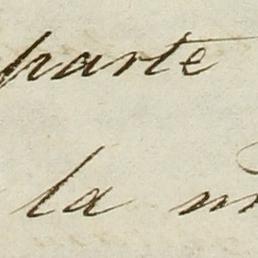 parte
la